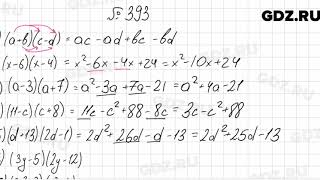 № 393
GDZ.RU
(a+b)(c-d) = ac - ad + bc - bd
(x-6)(x-4) = x²-6x-4x+24 = x²-10x+24
(a-3)(a+7) = a²-3a+7a-21 = a²+4a-21
(11-c)(c+8) = 11c-c²+88-8c = 3c-c²+88
(d+13)(2d-1) = 2d²+26d-d-13 = 2d²+25d-13
(3y-5)(2y-12)